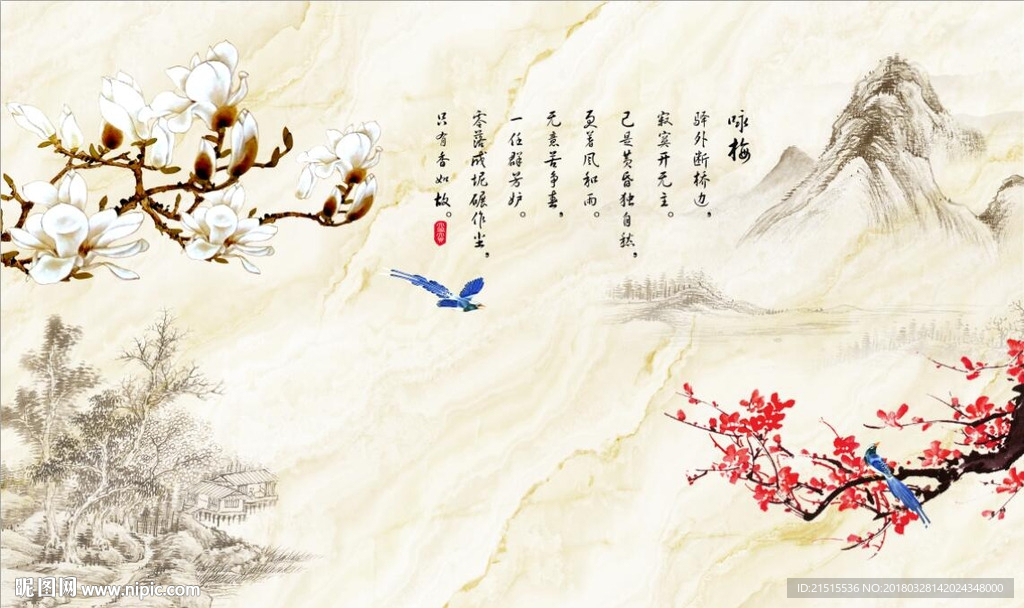 咏梅
驿外断桥边，
寂寞开无主。
已是黄昏独自愁，
更著风和雨。
无意苦争春，
一任群芳妒。
零落成坭碾作尘，
只有香如故。
昵图网 www.nipic.com
ID:21515536 NO:20180328142024348000